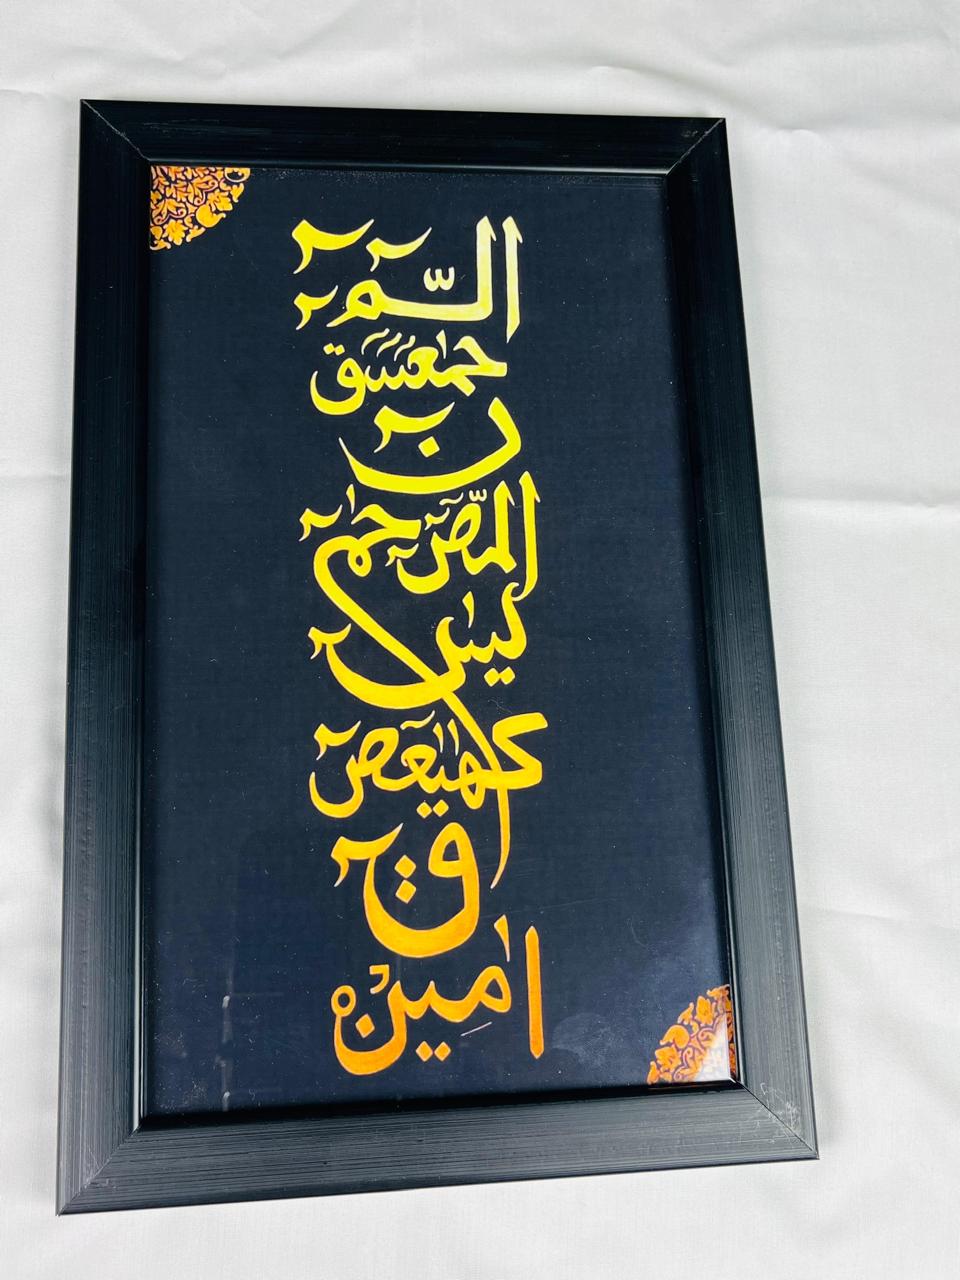 الٓمّٓ
حمٓعٓسٓقٓ
نٓ
الٓمّٓصٓ حٰمٓ
يٰسٓ
كٓهٰيٰعٓصٓ
قٓ
اٰمِيْنْ